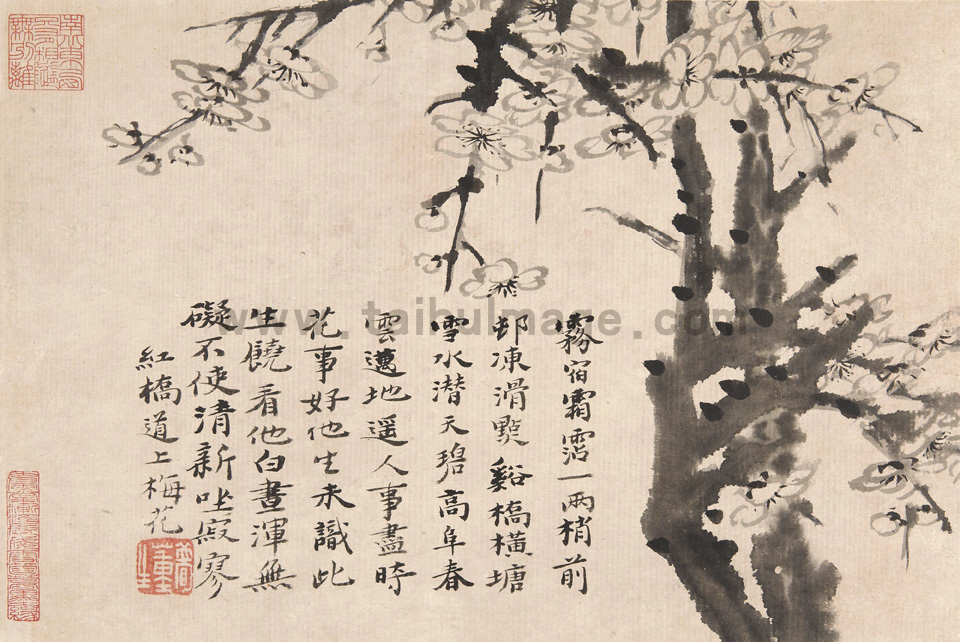 霧宿霜霑一兩梢前
邨凍滑點谿橋橫塘
雪水潛天碧高阜春
雲邁地遥人事盡時
花事好他生未識此
生饒看他白晝渾無
礙不使清新坐寂寥
紅橋道上梅花
www.taihuimage.com